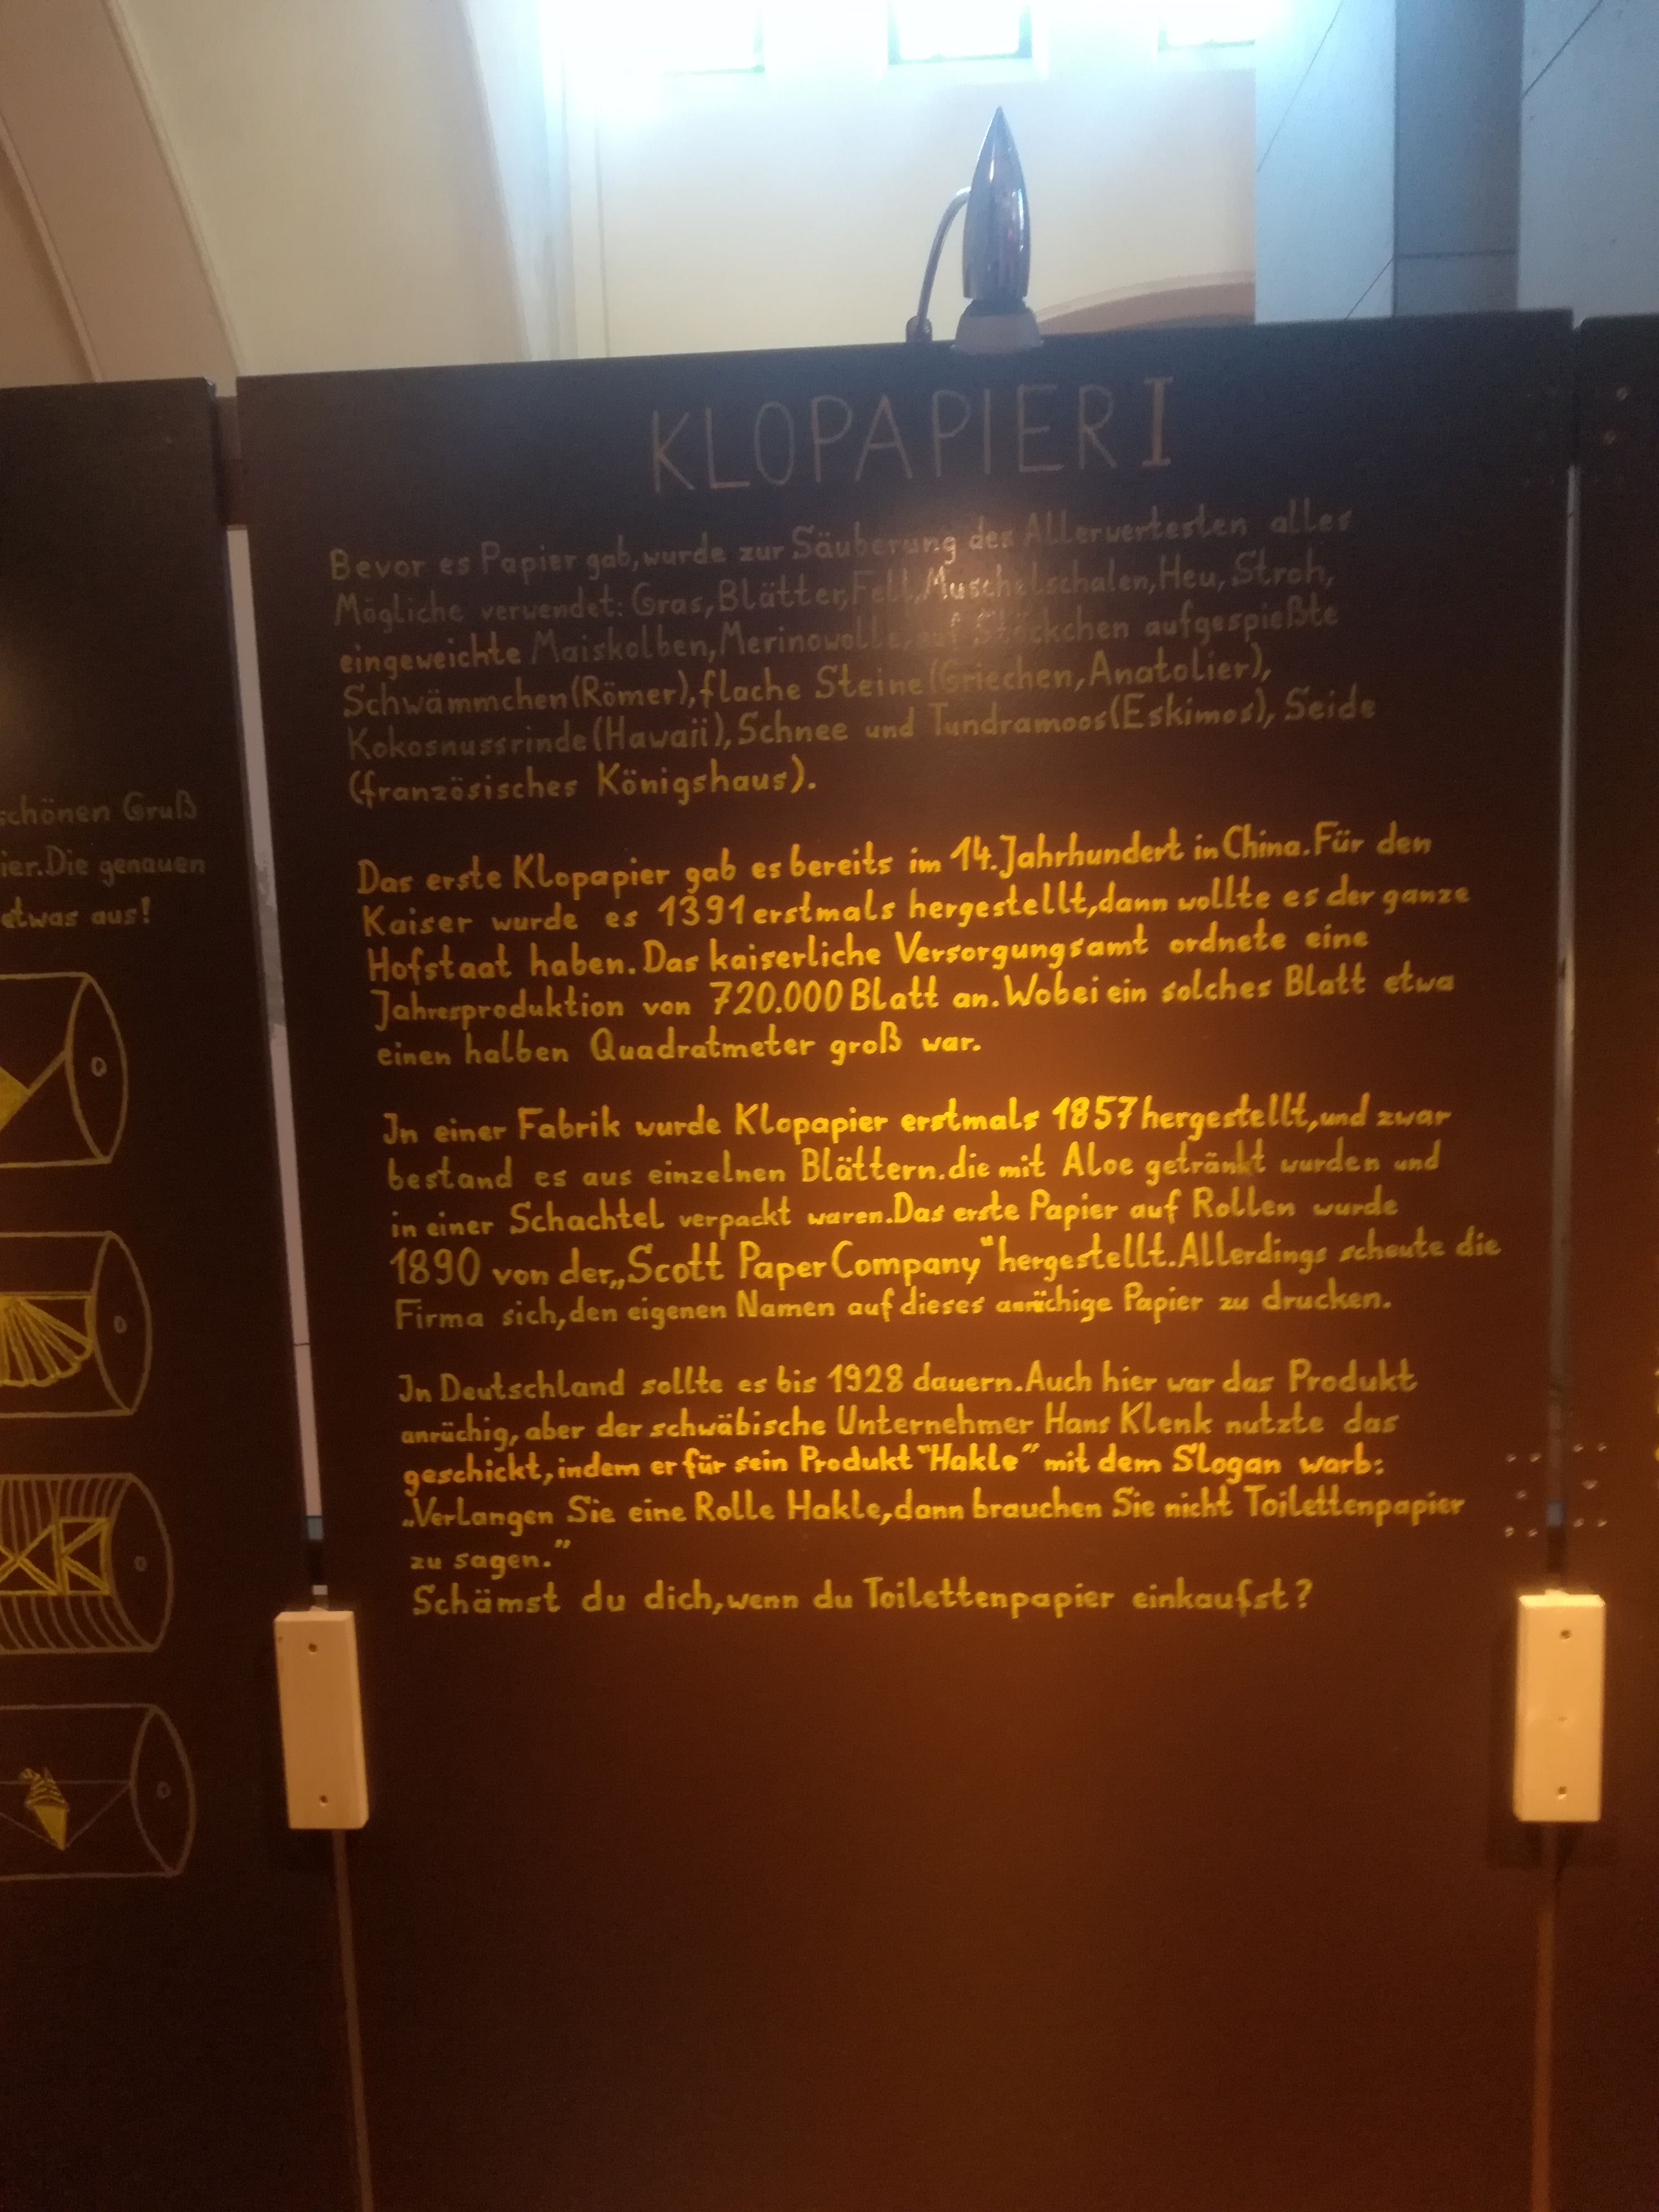 KLOPAPIER I
Bevor es Papier gab, wurde zur Säuberung des Allerwertesten alles
Mögliche verwendet: Gras, Blätter, Fell, Muschelschalen, Heu, Stroh,
eingeweichte Maiskolben, Merinowolle, auf Stöckchen aufgespießte
Schwämmchen (Römer), flache Steine (Griechen, Anatolier),
Kokosnussrinde (Hawaii), Schnee und Tundramoos (Eskimos), Seide
(französisches Königshaus).
Das erste Klopapier gab es bereits im 14. Jahrhundert in China. Für den
Kaiser wurde es 1391 erstmals hergestellt, dann wollte es der ganze
Hofstaat haben. Das kaiserliche Versorgungsamt ordnete eine
Jahresproduktion von 720.000 Blatt an. Wobei ein solches Blatt etwa
einen halben Quadratmeter groß war.
In einer Fabrik wurde Klopapier erstmals 1857 hergestellt, und zwar
bestand es aus einzelnen Blättern. die mit Aloe getränkt wurden und
in einer Schachtel verpackt waren. Das erste Papier auf Rollen wurde
1890 von der „Scott Paper Company“ hergestellt. Allerdings scheute die
Firma sich, den eigenen Namen auf dieses anrüchige Papier zu drucken.
In Deutschland sollte es bis 1928 dauern. Auch hier war das Produkt
anrüchig, aber der schwäbische Unternehmer Hans Klenk nutzte das
geschickt, indem er für sein Produkt "Hakle" mit dem Slogan warb:
„Verlangen Sie eine Rolle Hakle, dann brauchen Sie nicht Toilettenpapier
zu sagen.”
Schämst du dich, wenn du Toilettenpapier einkaufst?
schönen Gruß
ier. Die genauen
etwas aus!